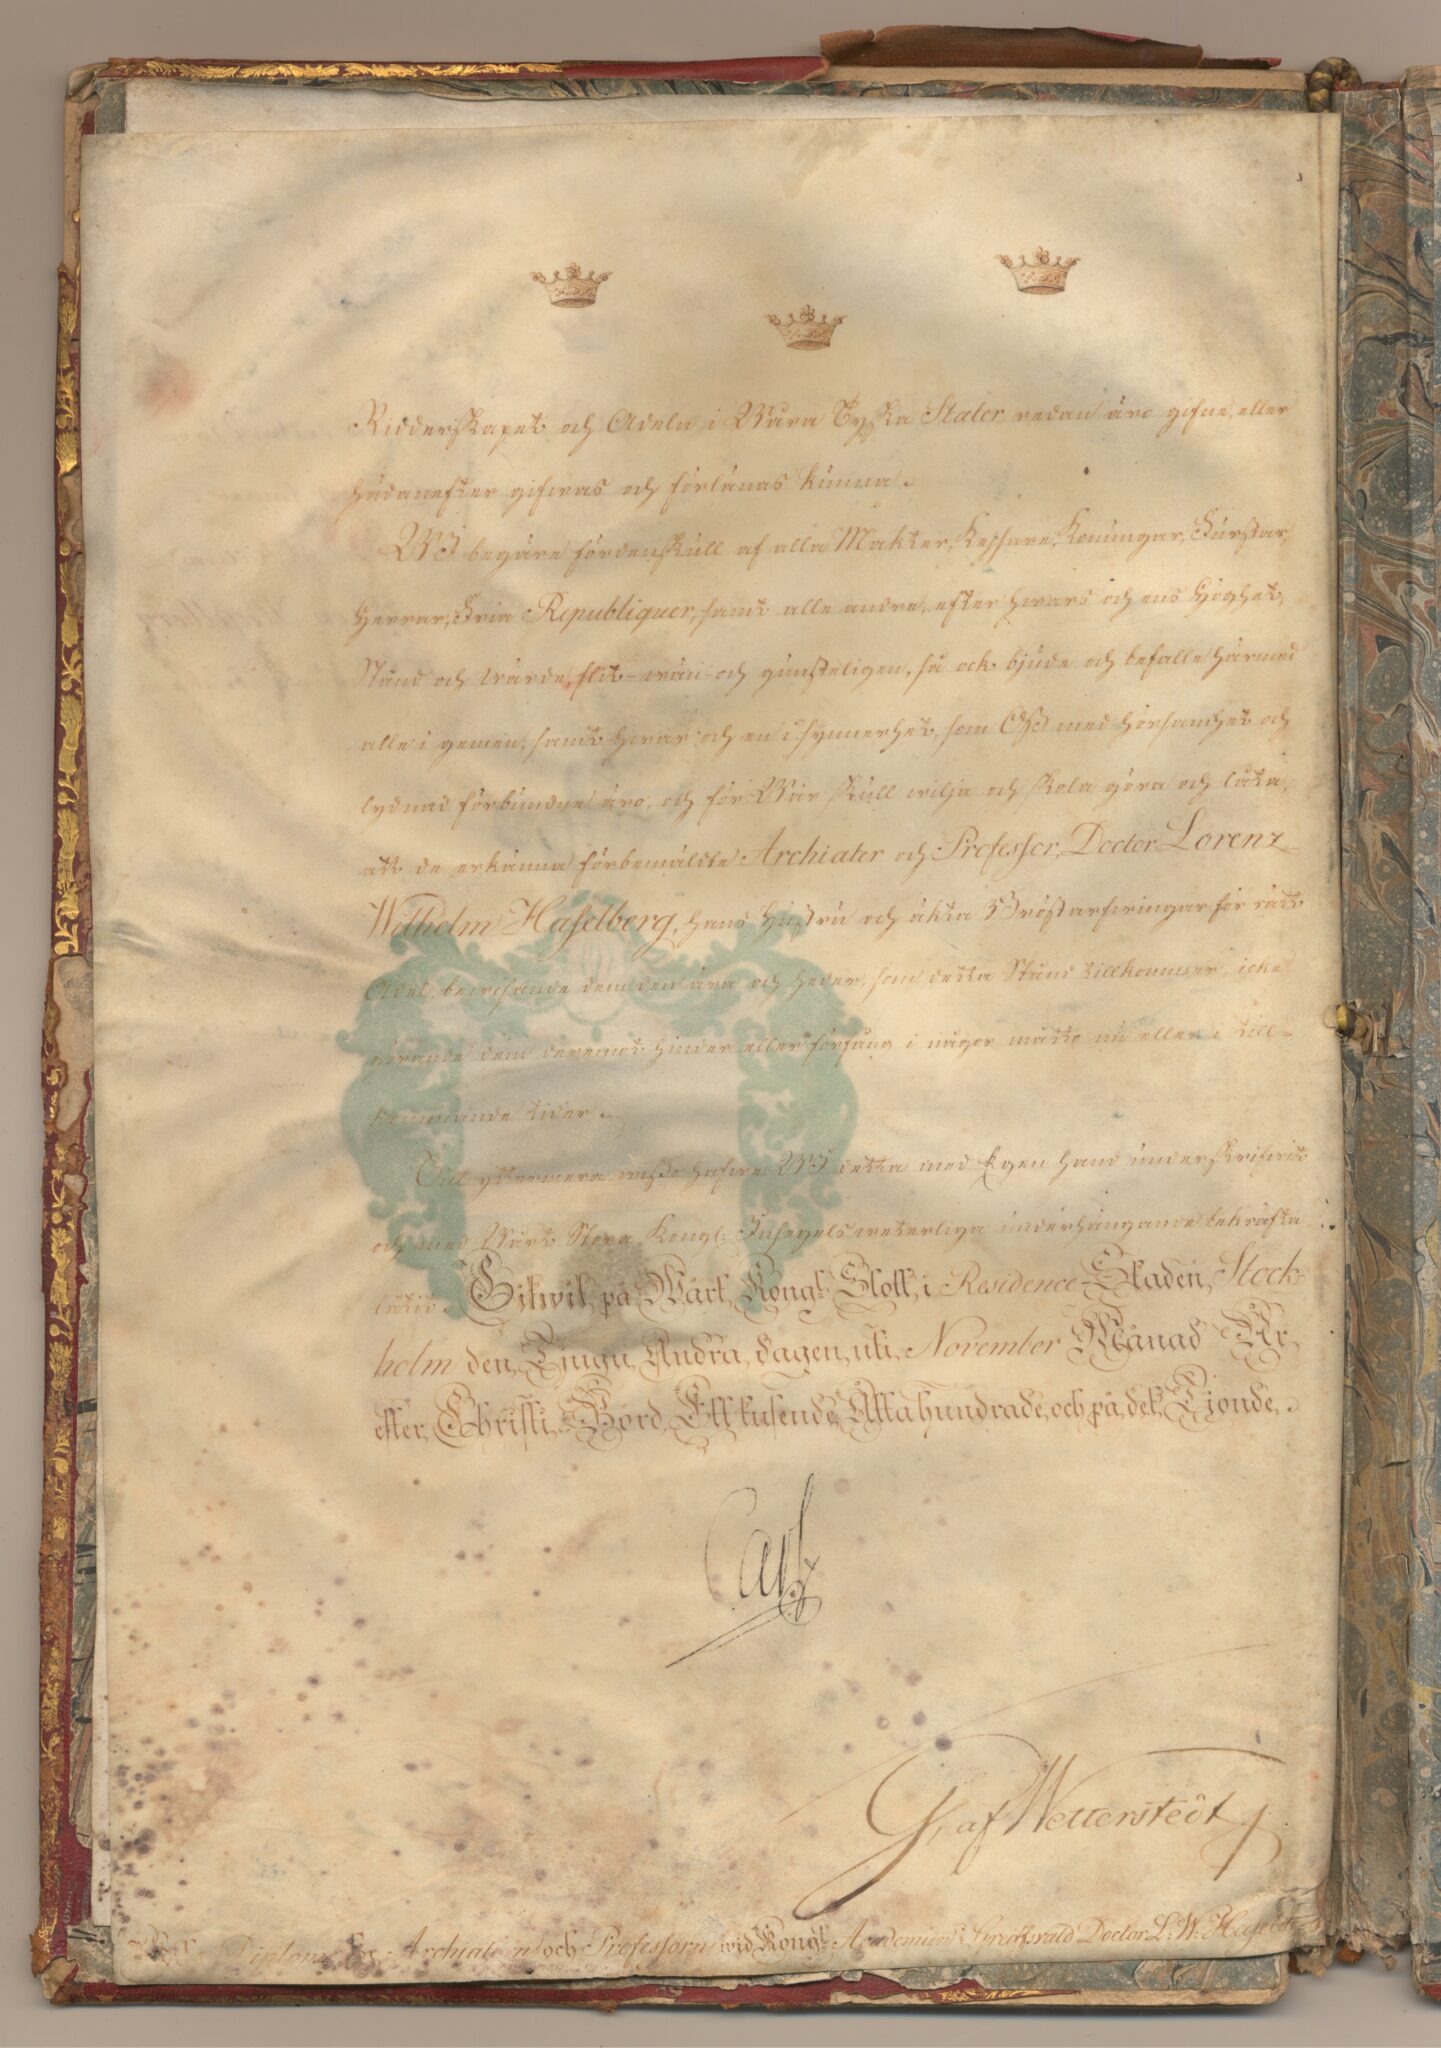 Ridderskapet och Adeln i Wåra Tyska Stater redan äro gifne, eller
hädanefter gifwas och förlänas kunna.
WJ begäre fördenskull af alla Makter, Kejsare, Konungar, Furstar,
Herrar, Fria Republiquer, samt alle andre, efter hwars och ens Höghet,
Stånd och wärde, flit- wän- och gunsteligen, så ock bjude och befalle härmed
alle i gemen, samt hwar och en i synnerhet, som OSS med hörsamhet och
lydnad förbundne äro, och för Wår skull wilja och skola göra och låta,
att de erkänna förbemälte Archiater och Professor, Doctor Lorenz
Wilhelm Haselberg, hans Hustru och äkta Bröstarfwingar för rätt
Adel, bewisande dem den ära och heder, som detta Stånd tillkommer, icke
görande dem deremot hinder eller förfång i någor måtto nu eller i till-
kommande tider.
Till yttermera wisso hafwe WJ detta med Egen hand underskrifwit
och med Wårt Stora Kongl: Insegels weterliga underhängande bekräfta
låtit. Gifwit på Wårt Kongl. Slott i Residence-Staden Stock-
holm den Tjugu Andra dagen uti November Månad År
efter Christi Börd Ett tusende Åtta hundrade, och på det Tionde.
Carl
G. af Wetterstedt
Diplom för Archiatern och Professorn wid Kongl. Academien i Greifswald Doctor L. W. Haselberg